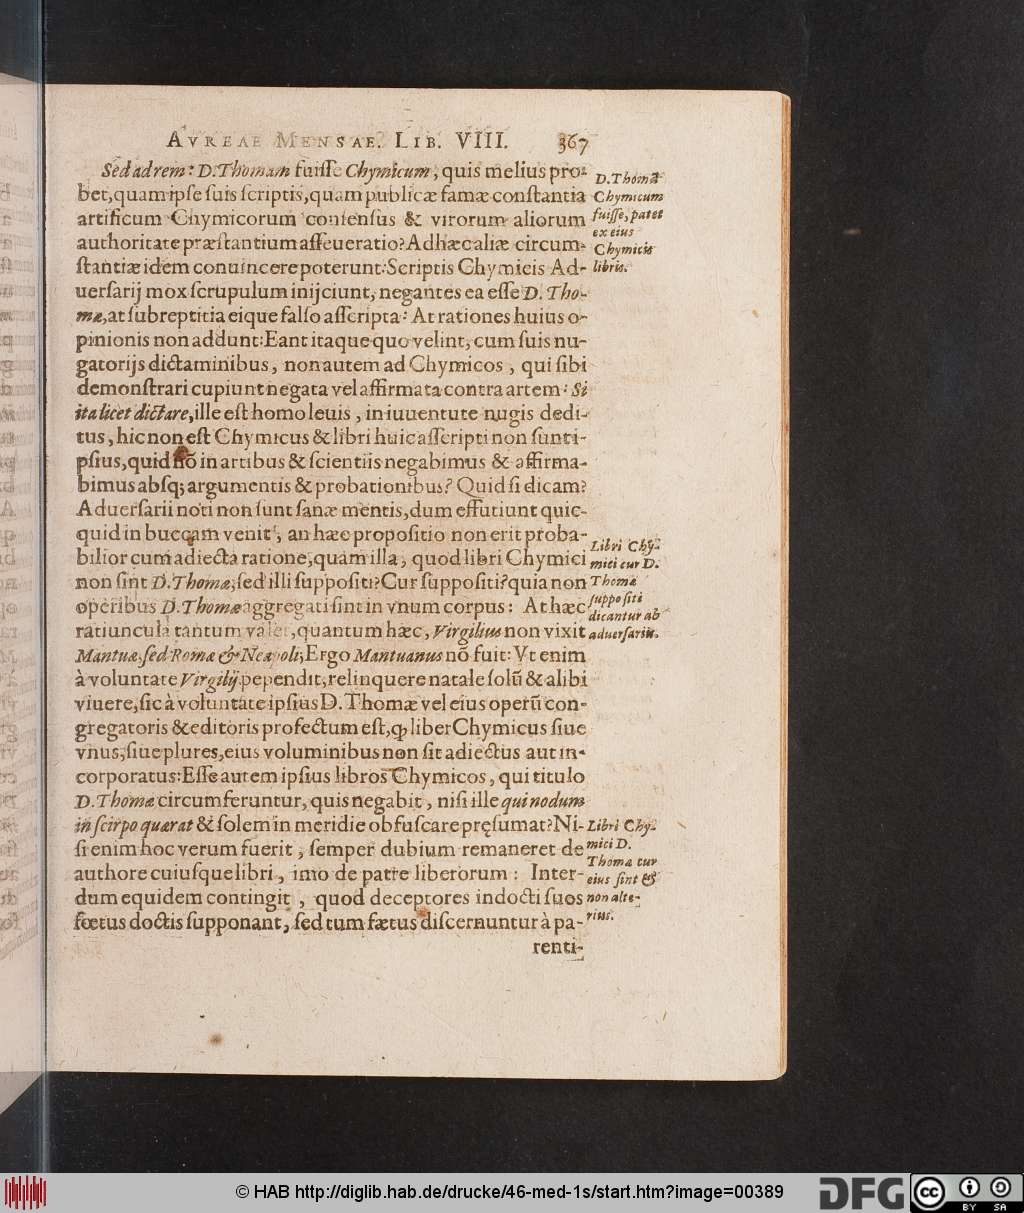 AVREAE MENSAE. LIB. VIII. 367
Sed ad rem: D. Thomam fuiſſe Chymicum, quis melius pro-
bet, quam ipſe ſuis ſcriptis, quam publicæ famæ conſtantia
artificum Chymicorum conſenſus & virorum aliorum
authoritate præſtantium aſſeueratio? Ad hæc aliæ circum-
ſtantiæ idem conuincere poterunt: Scriptis Chymicis Ad-
uerſarij mox ſcrupulum inijciunt, negantes ea eſſe D. Tho-
mæ, at ſubreptitia eique falſo aſſcripta: At rationes huius o-
pinionis non addunt: Eant itaque quo velint, cum ſuis nu-
gatorijs dictaminibus, non autem ad Chymicos, qui ſibi
demonſtrari cupiunt negata vel affirmata contra artem: Si
ita licet dictare, ille eſt homo leuis, in iuuentute nugis dedi-
tus, hic non eſt Chymicus & libri huic aſſcripti non ſunt i-
pſius, quid nõ in artibus & ſcientiis negabimus & affirma-
bimus abſq; argumentis & probationibus? Quid ſi dicam?
Aduerſarii noti non ſunt ſanæ mentis, dum effutiunt quic-
quid in buccam venit; an hæc propoſitio non erit proba-
bilior cum adiecta ratione, quam illa, quod libri Chymici
non ſint D. Thomæ, ſed illi ſuppoſiti? Cur ſuppoſiti? quia non
operibus D. Thomæ aggregati ſint in vnum corpus: At hæc
ratiuncula tantum valet, quantum hæc, Virgilius non vixit
Mantuæ, ſed Romæ & Neapoli; Ergo Mantuanus nõ fuit: Vt enim
à voluntate Virgilij pependit, relinquere natale ſolũ & alibi
viuere, ſic à voluntate ipſius D. Thomæ vel eius operũ con-
gregatoris & editoris profectum eſt, ꝙ liber Chymicus ſiue
vnus, ſiue plures, eius voluminibus non ſit adiectus aut in-
corporatus: Eſſe autem ipſius libros Chymicos, qui titulo
D. Thomæ circumferuntur, quis negabit, niſi ille qui nodum
in ſcirpo quærat & ſolem in meridie obfuſcare pręſumat? Ni-
ſi enim hoc verum fuerit, ſemper dubium remaneret de
authore cuiuſque libri, imo de patre liberorum: Inter-
dum equidem contingit, quod deceptores indocti ſuos
fœtus doctis ſupponant, ſed tum fætus diſcernuntur à pa-
renti-
D. Thomã
Chymicum
fuiſſe, patet
ex eius
Chymicis
libris.
Libri Chy-
mici cur D.
Thomæ
ſuppoſiti
dicantur ab
aduerſariis.
Libri Chy-
mici D.
Thomæ cur
eius ſint &
non alte-
rius.
© HAB http://diglib.hab.de/drucke/46-med-1s/start.htm?image=00389
DFG
cc BY SA